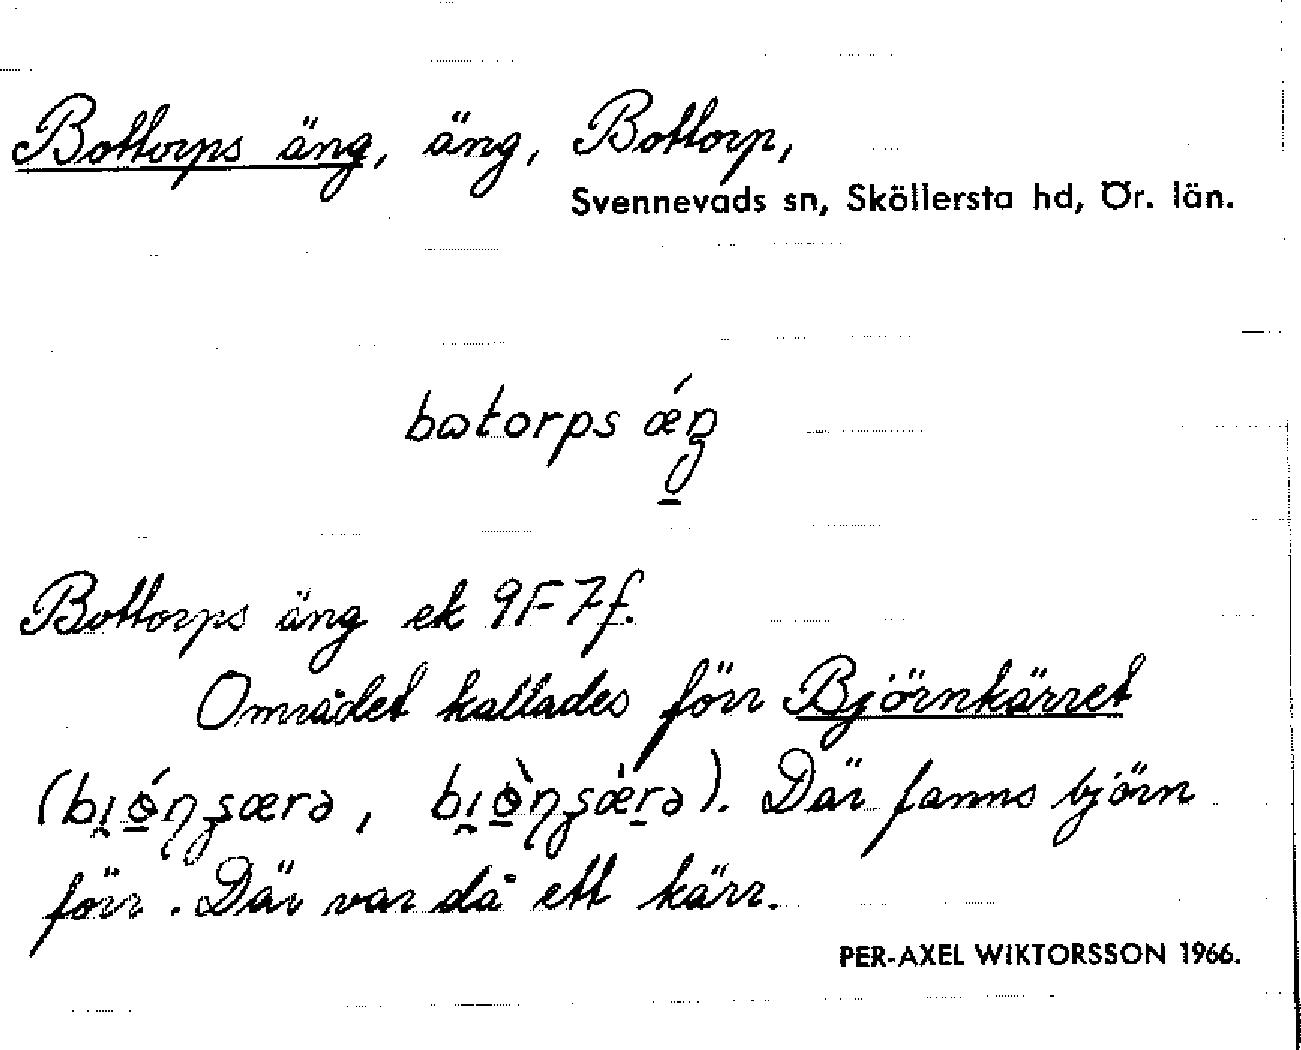 Bottorps äng, äng, Bottorp,
Svennevads sn, Sköllersta hd, Ör. län.
batorps
Bottorps äng ek 9F 7f.
Området kallades förr Björnkärret
Där fanns björn
förr. Där var då ett kärr.
PER-AXEL WIKTORSSON 1966.